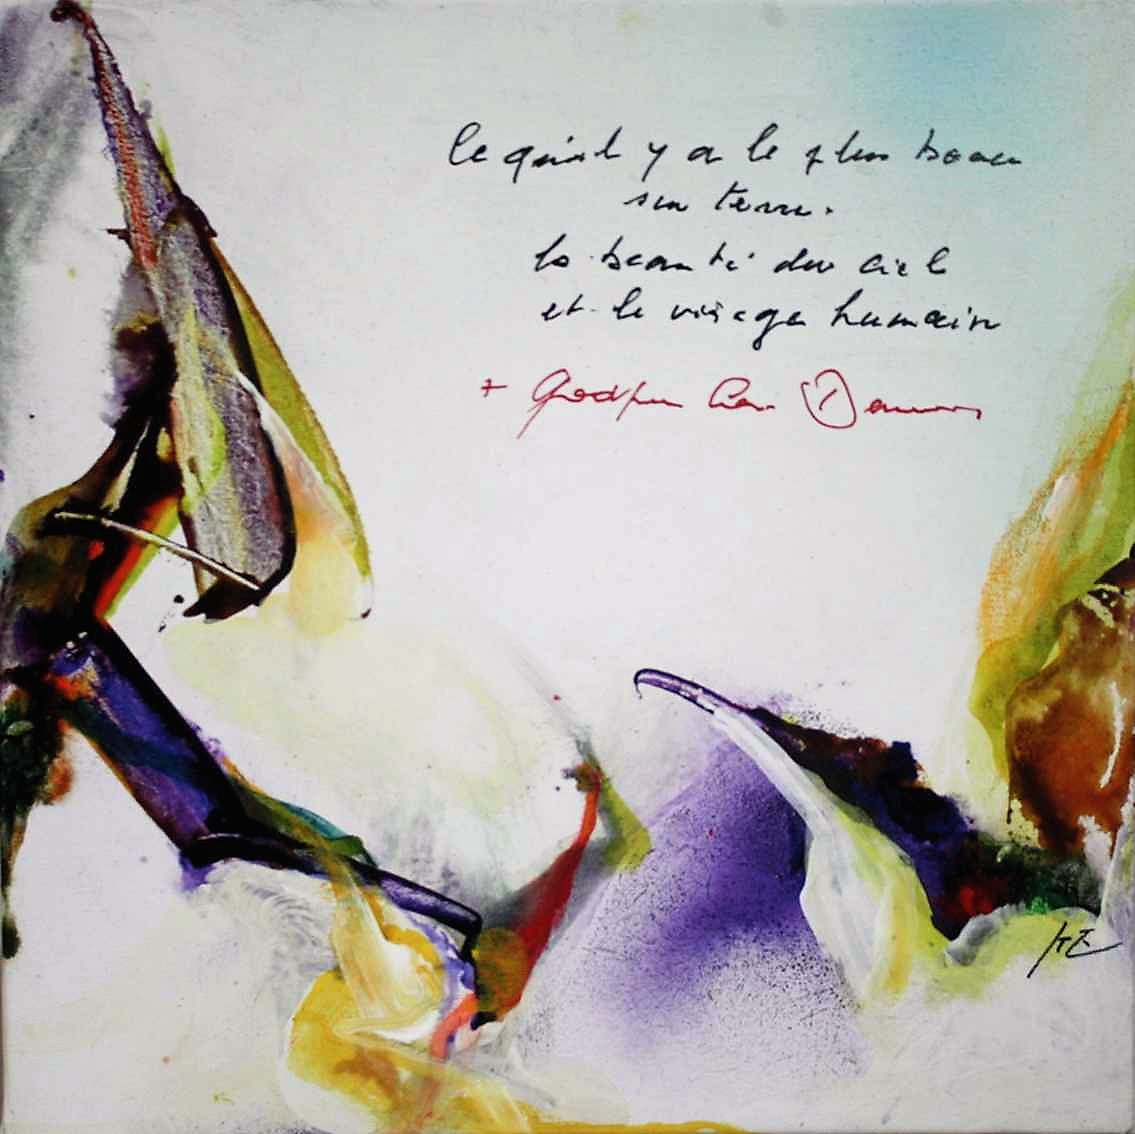 ce qu'il y a de plus beau
sur terre.
la beauté du ciel
et le visage humain
+ Godfried Card. Danneels